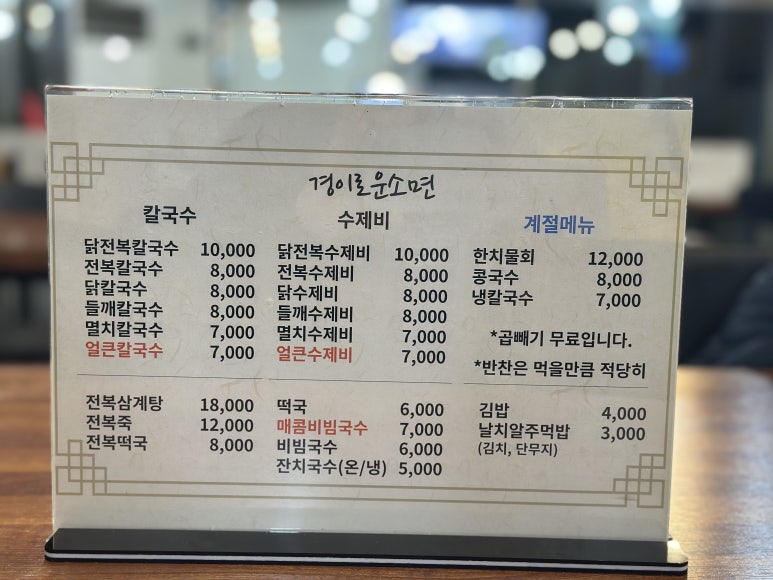 경이로운소면
칼국수
닭전복칼국수 10,000
전복칼국수 8,000
닭칼국수 8,000
들깨칼국수 8,000
멸치칼국수 7,000
얼큰칼국수 7,000
수제비
닭전복수제비 10,000
전복수제비 8,000
닭수제비 8,000
들깨수제비 8,000
멸치수제비 7,000
얼큰수제비 7,000
계절메뉴
한치물회 12,000
콩국수 8,000
냉칼국수 7,000
*곱빼기 무료입니다.
*반찬은 먹을만큼 적당히
전복삼계탕 18,000
전복죽 12,000
전복떡국 8,000
떡국 6,000
매콤비빔국수 7,000
비빔국수 6,000
잔치국수(온/냉) 5,000
김밥 4,000
날치알주먹밥 3,000
(김치, 단무지)